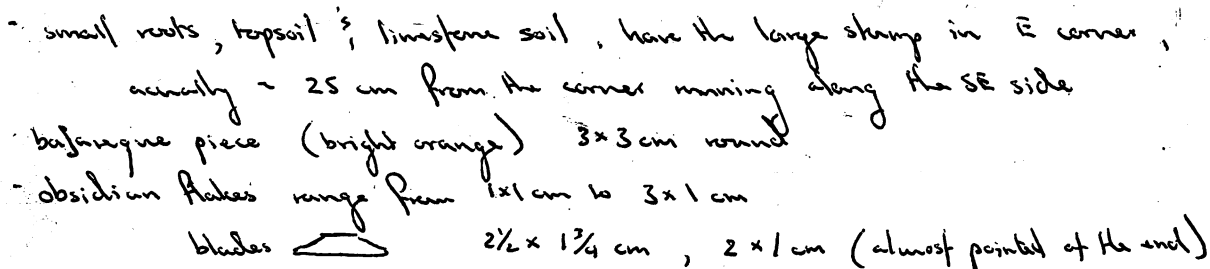 - small roots, topsoil 's, limestone soil, have the large stump in E corner,
actually ~ 25 cm from the corner running along the SE side
bajareque piece (bright orange) 3×3 cm round
- obsidian flakes range from 1×1 cm to 3×1 cm
blades 2½ × 1¾ cm, 2×1 cm (almost pointed at the end)